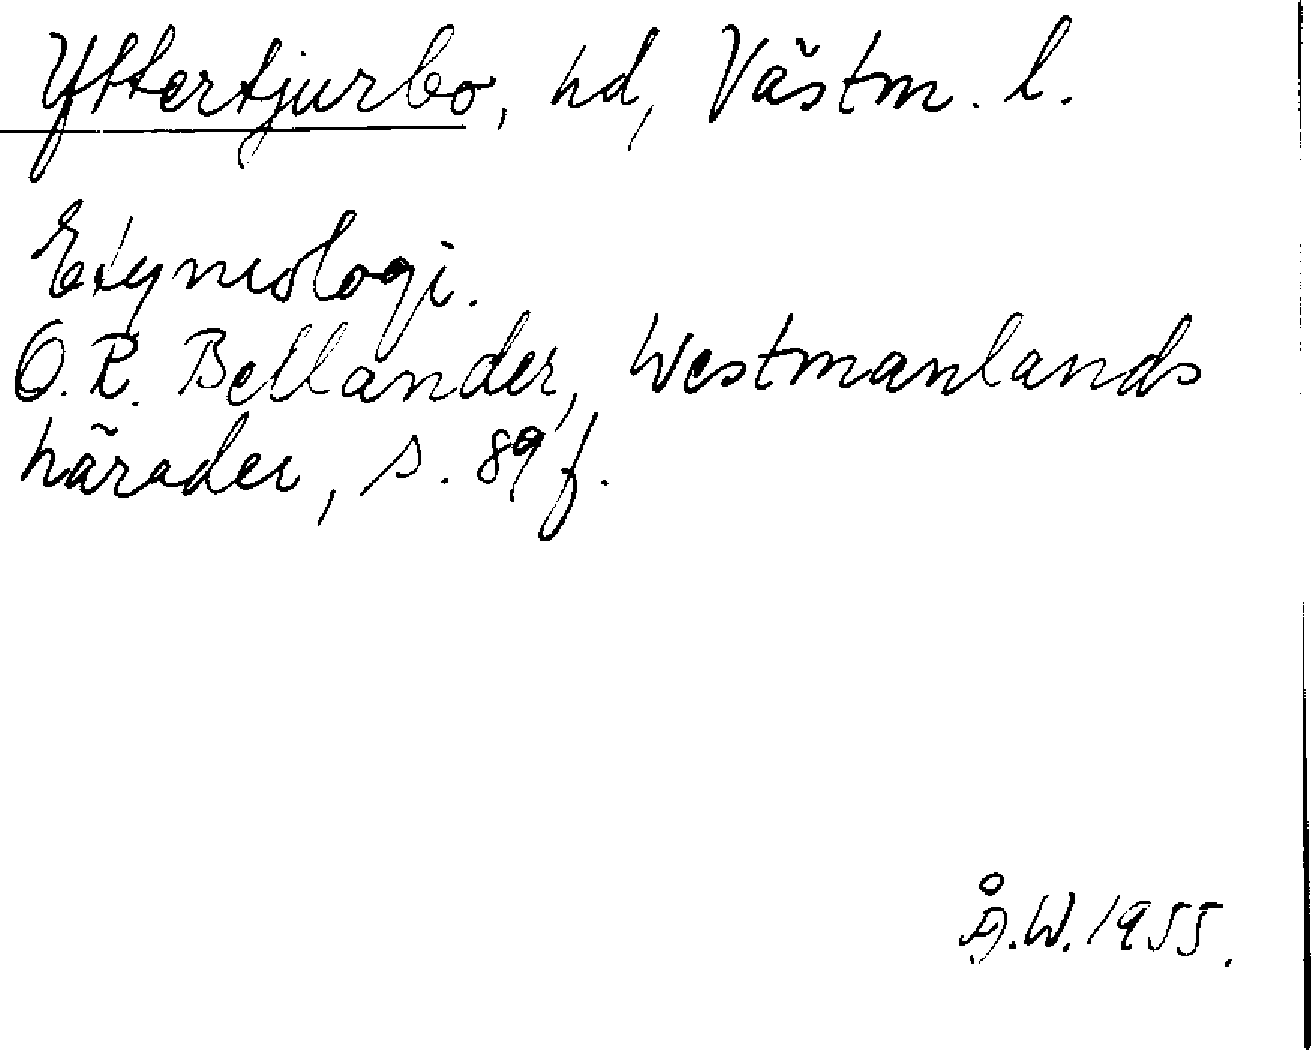 Yttertjurbo, hd, Västm. l.
Etymologi.
O.R. Bellander, Westmanlands
härader, s. 89 f.
Å.W. 1955.